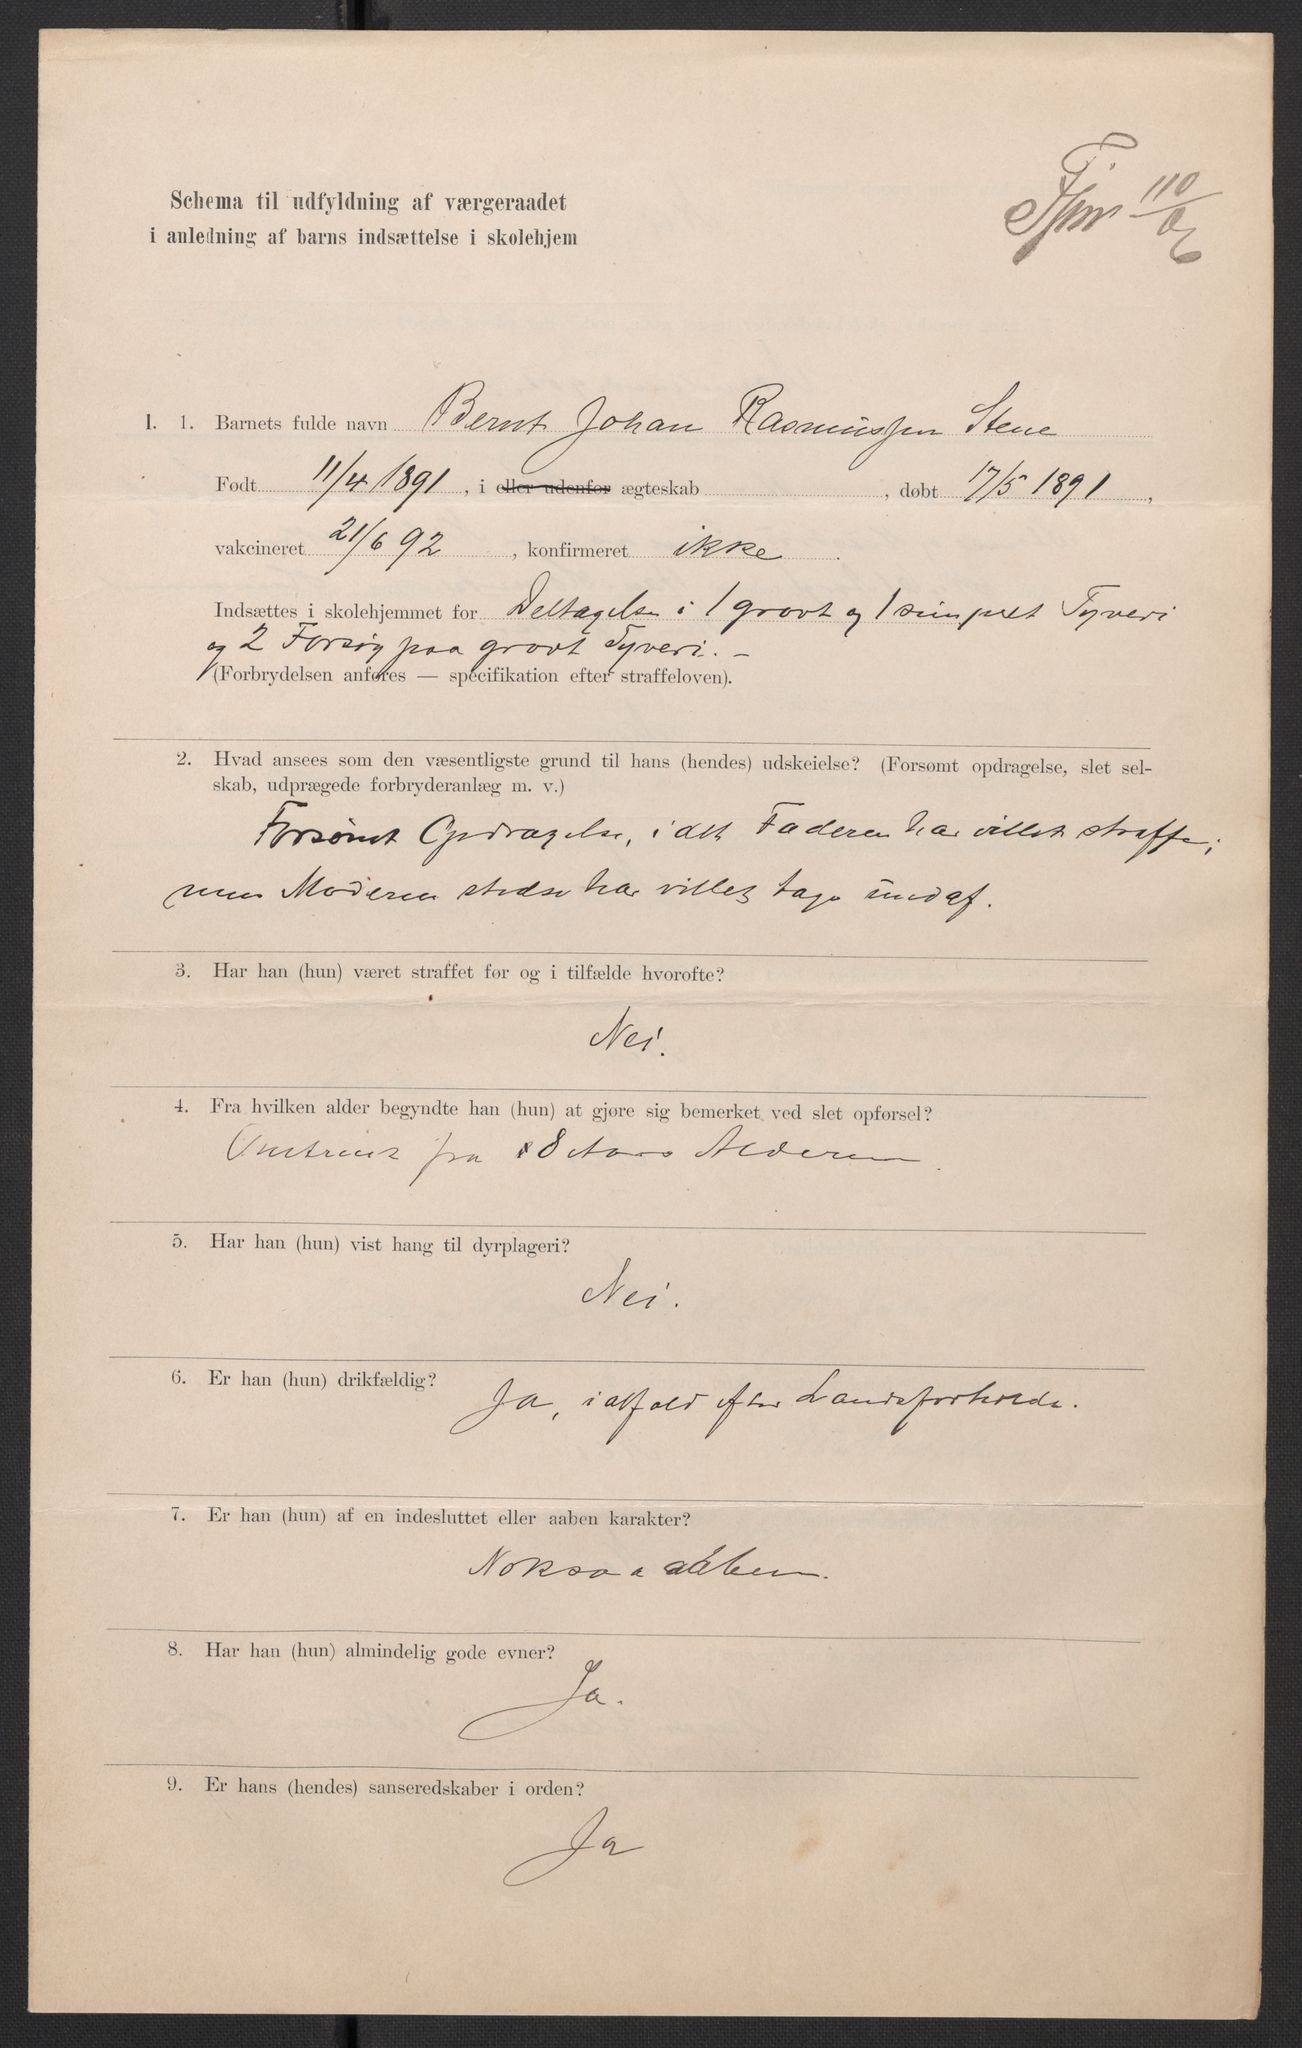 110/06
Schema til udfyldning af værgeraadet
i anledning af barns indsættelse i skolehjem
I. 1. Barnets fulde navn Bernt Johan Rasmussen Stene
Født 11/4 1891, i eller udenfor ægteskab , døbt 17/5 1891,
vakcineret 21/6 92 , konfirmeret ikke .
Indsættes i skolehjemmet for Deltagelse i 1 grovt og 1 simpelt Tyveri
og 2 Forsøg paa grovt Tyveri. –
(Forbrydelsen anføres — specifikation efter straffeloven).
2. Hvad ansees som den væsentligste grund til hans (hendes) udskeielse? (Forsømt opdragelse, slet sel-
skab, udprægede forbryderanlæg m. v.)
Forsømt Opdragelse, idet Faderen har villet straffe;
men Moderen stedse har villet tage undaf.
3. Har han (hun) været straffet før og i tilfælde hvorofte?
Nei.
4. Fra hvilken alder begyndte han (hun) at gjøre sig bemerket ved slet opførsel?
Omtrent fra 8 Aars Alderen.
5. Har han (hun) vist hang til dyrplageri?
Nei.
6. Er han (hun) drikfældig?
Ja, ialfald efter Landsforholde.
7. Er han (hun) af en indesluttet eller aaben karakter?
Noksaa aaben.
8. Har han (hun) almindelig gode evner?
Ja.
9. Er hans (hendes) sanseredskaber i orden?
Ja